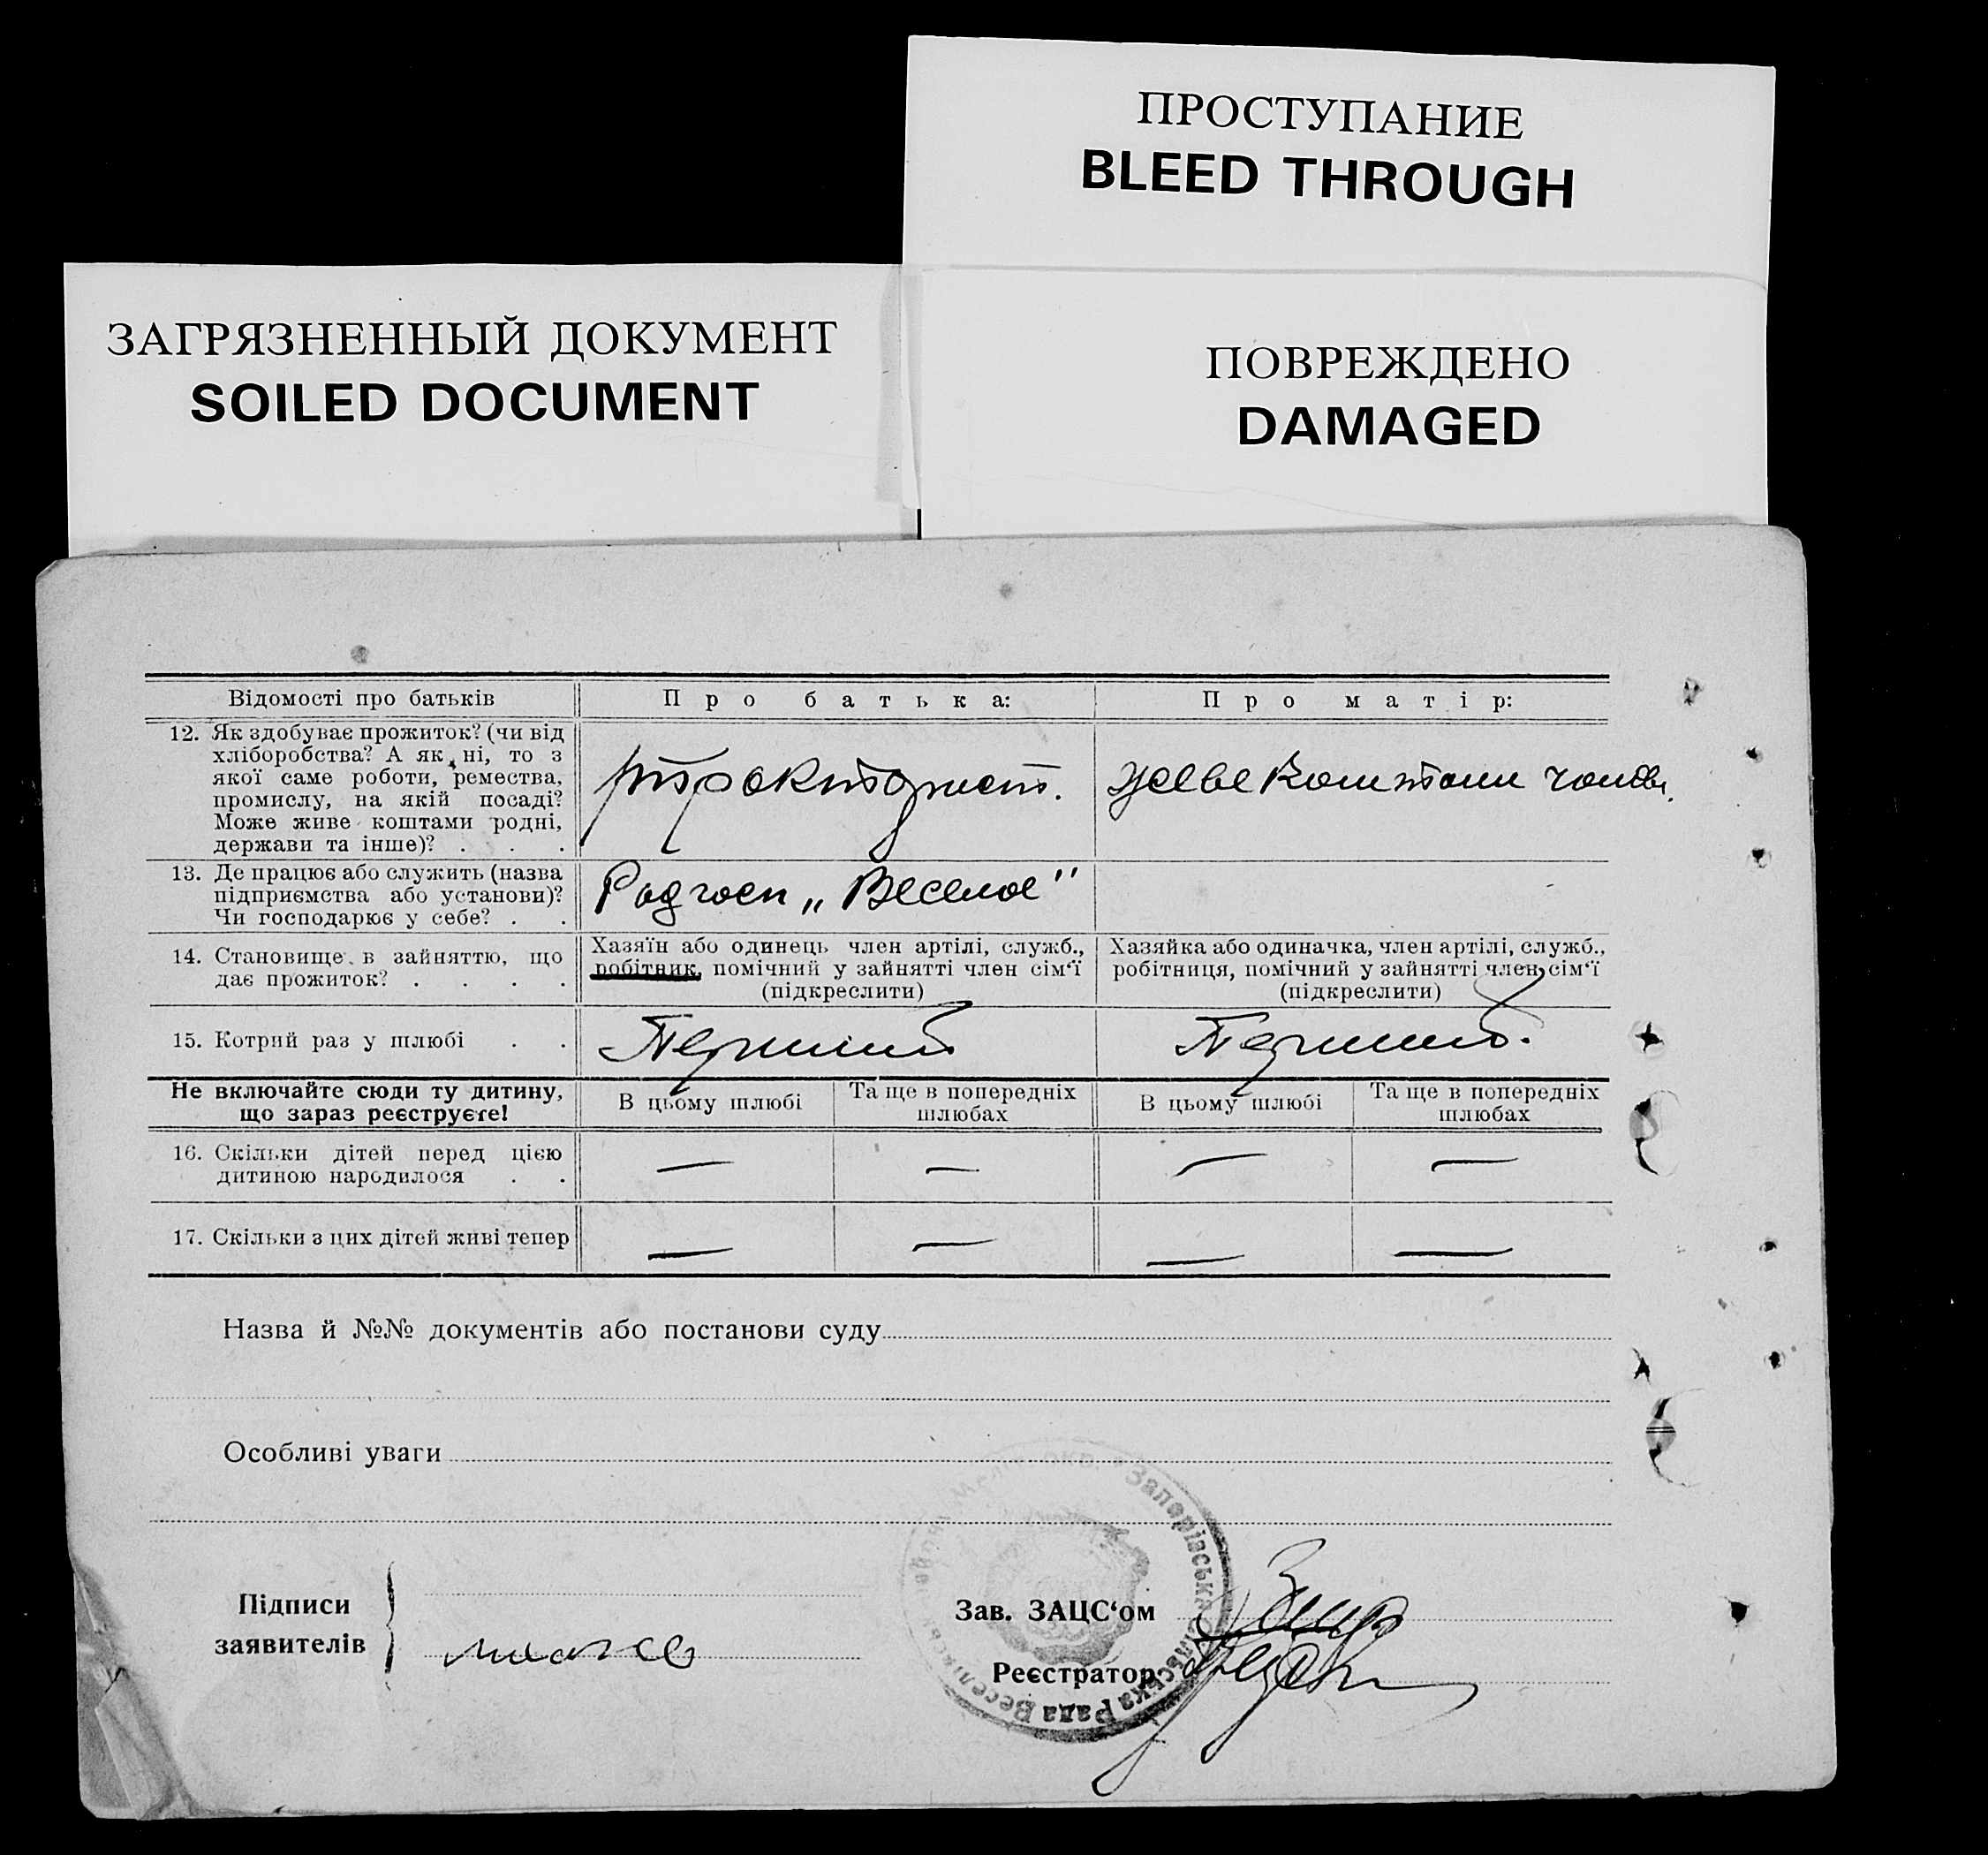 ПРОСТУПАНИЕ
BLEED THROUGH
ЗАГРЯЗНЕННЫЙ ДОКУМЕНТ
SOILED DOCUMENT
ПОВРЕЖДЕНО
DAMAGED
Відомості про батьків
Про батька:
Про матір:
12. Як здобуває прожиток? (чи від
хліборобства? А як ні, то з
якої саме роботи, ремества,
промислу, на якій посаді?
Може живе коштами родні,
держави та інше)? . . .
трокторист.
живе коштами чолов.
13. Де працює або служить (назва
підприємства або установи)?
Чи господарює у себе? . .
Радгосп „Веселое"
14. Становище в зайняттю, що
дає прожиток? . . . .
Хазяїн або одинець член артілі, служб.,
робітник, помічний у зайнятті член сім'ї
(підкреслити)
Хазяйка або одиначка, член артілі, служб.,
робітниця, помічний у зайнятті член сім'ї
(підкреслити)
15. Котрий раз у шлюбі . .
Перший
Перший.
Не включайте сюди ту дитину,
що зараз реєструєте!
В цьому шлюбі
Та ще в попередніх
шлюбах
В цьому шлюбі
Та ще в попередніх
шлюбах
16. Скільки дітей перед цією
дитиною народилося . .
— — — —
17. Скільки з цих дітей живі тепер
— — — —
Назва й №№ документів або постанови суду
Особливі уваги
Підписи
заявителів
Зав. ЗАЦС'ом
Реєстратор
окр. * Запорівська Сільська Рада Веселівськ